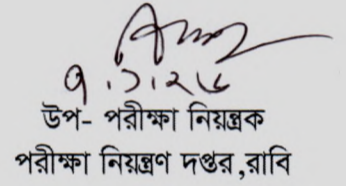 ৭.১.২৬
উপ- পরীক্ষা নিয়ন্ত্রক
পরীক্ষা নিয়ন্ত্রণ দপ্তর,রাবি